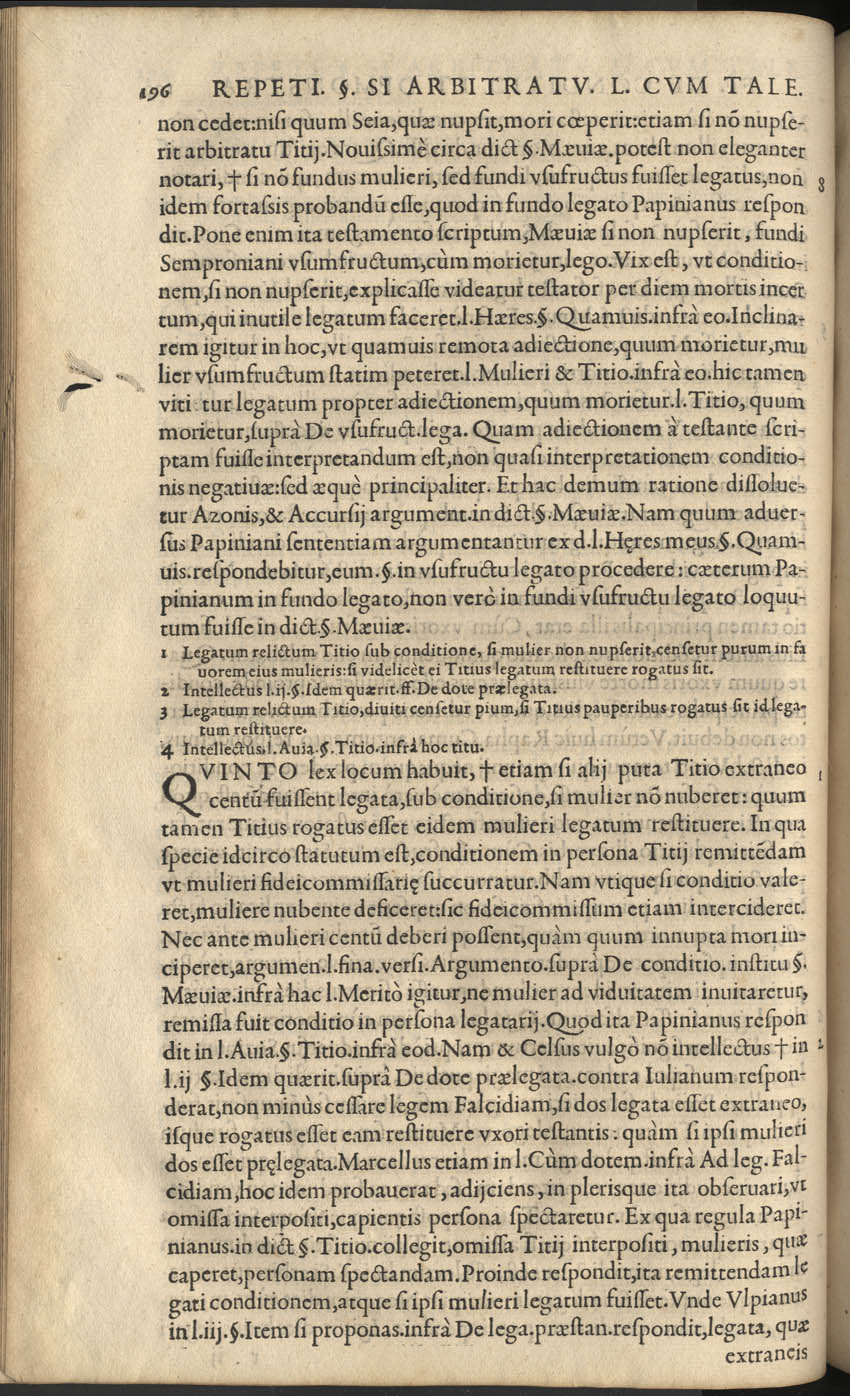 196 REPETI. §. SI ARBITRATV. L. CVM TALE.
non cedet:nisi quum Seia,quæ nupsit,mori cœperit:etiam si nõ nupse-
rit arbitratu Titij.Nouissimè circa dict §.Mæuiæ.potest non eleganter
notari, † si nõ fundus mulieri, sed fundi vsufructus fuisset legatus,non 8
idem fortassis probandũ esse,quod in fundo legato Papinianus respon
dit.Pone enim ita testamento scriptum,Mæuiæ si non nupserit, fundi
Semproniani vsumfructum,cùm morietur,lego.Vix est, vt conditio-
nem,si non nupserit,explicasse videatur testator per diem mortis incer
tum,qui inutile legatum faceret.l.Hæres.§.Quamuis.infrà eo.Inclina-
rem igitur in hoc,vt quamuis remota adiectione,quum morietur,mu
lier vsumfructum statim peteret.l.Mulieri & Titio.infrà eo.hic tamen
viti tur legatum propter adiectionem,quum morietur.l.Titio, quum
morietur,suprà De vsufruct.lega. Quam adiectionem à testante scri-
ptam fuisse interpretandum est,non quasi interpretationem conditio-
nis negatiuæ:sed æquè principaliter. Et hac demum ratione dissolue-
tur Azonis,& Accursij argument.in dict.§.Mæuiæ.Nam quum aduer-
sus Papiniani sententiam argumentantur ex d.l.Hęres meus.§.Quam-
uis.respondebitur,eum.§.in vsufructu legato procedere: cæterum Pa-
pinianum in fundo legato,non verò in fundi vsufructu legato loquu-
tum fuisse in dict.§.Mæuiæ.
1 Legatum relictum Titio sub conditione, si mulier non nupserit,censetur purum in fa
uorem eius mulieris:si videlicèt ei Titius legatum restituere rogatus sit.
2 Intellectus l.ij.§.Idem quærit.ff.De dote prælegata.
3 Legatum relictum Titio,diuiti censetur pium,si Titius pauperibus rogatus sit id lega-
tum restituere.
4 Intellectus.l.Auia.§.Titio.infrà hoc titu.
QVINTO lex locum habuit, † etiam si alij puta Titio extraneo 1
centũ fuissent legata,sub conditione,si mulier nõ nuberet: quum
tamen Titius rogatus esset eidem mulieri legatum restituere. In qua
specie idcirco statutum est,conditionem in persona Titij remittẽdam
vt mulieri fideicommissarię succurratur.Nam vtique si conditio vale-
ret,muliere nubente deficeret:sic fideicommissum etiam intercideret.
Nec ante mulieri centũ deberi possent,quàm quum innupta mori in-
ciperet,argumen.l.fina.versi.Argumento.suprà De conditio. institu §.
Mæuiæ.infrà hac l.Meritò igitur,ne mulier ad viduitatem inuitaretur,
remissa fuit conditio in persona legatarij.Quod ita Papinianus respon
dit in l.Auia.§.Titio.infrà eod.Nam & Celsus vulgò nõ intellectus † in 2
l.ij §.Idem quærit.suprà De dote prælegata.contra Iulianum respon-
derat,non minùs cessare legem Falcidiam,si dos legata esset extraneo,
isque rogatus esset eam restituere vxori testantis: quàm si ipsi mulieri
dos esset pręlegata.Marcellus etiam in l.Cùm dotem.infrà Ad leg. Fal-
cidiam,hoc idem probauerat, adijciens, in plerisque ita obseruari,vt
omissa interpositi,capientis persona spectaretur. Ex qua regula Papi-
nianus.in dict §.Titio.collegit,omissa Titij interpositi, mulieris, quæ
caperet,personam spectandam.Proinde respondit,ita remittendam le
gati conditionem,atque si ipsi mulieri legatum fuisset.Vnde Vlpianus
in l.iij.§.Item si proponas.infrà De lega.præstan.respondit,legata, quæ
extraneis